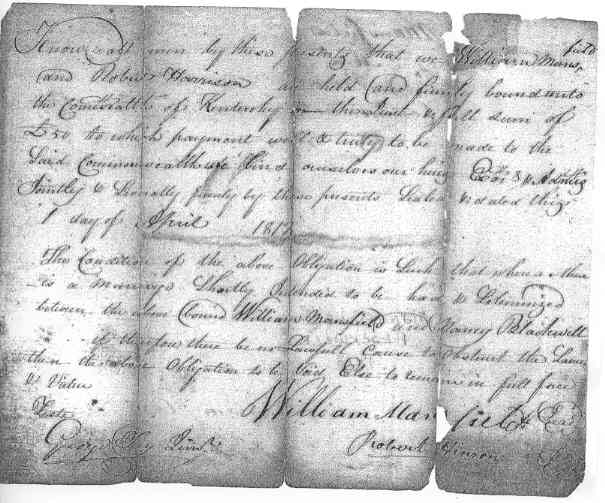 Know all men by these presents that we William Mans,
field
and Robert Harrison are held and firmly bound unto
the Comwealth of Kentucky in the Just & full sum of
£50 to which payment well & truly to be made to the
Said Commonwealth we bind ourselves our heirs &
Jointly & Severally firmly by these presents Sealed & dated this
1 day of April 181
The Condition of the above Obligation is Such that whereas there
is a marriage Shortly Intended to be had & Solemnized
between the above bound William Mansfield and Nancy Blackwell
if therefore there be no Lawfull Cause to Obstruct the Same
then the above Obligation to be Void Else to remain in full force
& Virtue
William Mansfield
Teste
Robert